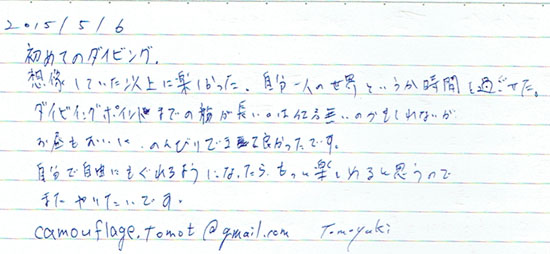 2015/5/6
初めてのダイビング.
想像していた以上に楽しかった. 自分一人の世界というか時間を過ごせた.
ダイビングポイントまでの船が長いのは仕方無いのかもしれないが
お昼もおいしく、のんびりできて良かったです。
自分で自由にもぐれるようになったら、もっと楽しめると思うので
またやりたいです。
camouflage.tomot@gmail.com Tomoyuki